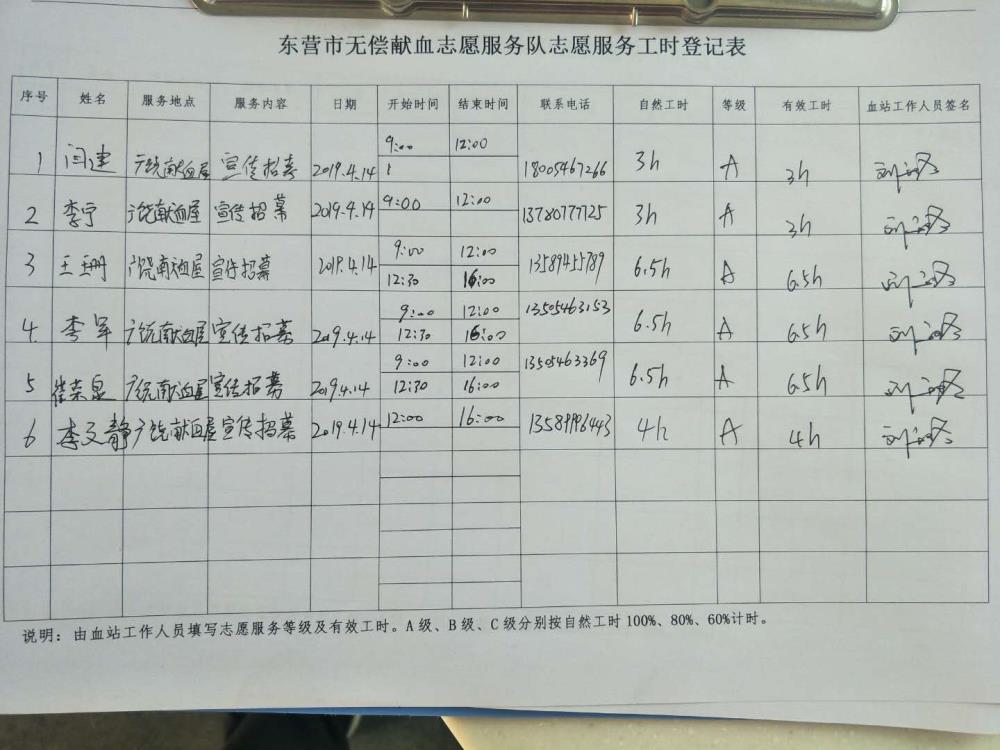 东营市无偿献血志愿服务队志愿服务工时登记表
序号 姓名 服务地点 服务内容 日期 开始时间 结束时间 联系电话 自然工时 等级 有效工时 血站工作人员签名
1 闫建 广饶献血屋 宣传招募 2019.4.14 9:00 12:00 18005467266 3h A 3h
2 李宁 广饶献血屋 宣传招募 2019.4.14 9:00 12:00 13780777725 3h A 3h
3 王珊 广饶献血屋 宣传招募 2019.4.14 9:00 12:00 13589455789 6.5h A 6.5h
12:30 16:00
4. 李军 广饶献血屋 宣传招募 2019.4.14 9:00 12:00 13505463153 6.5h A 6.5h
12:30 16:00
5 崔荣泉 广饶献血屋 宣传招募 2019.4.14 9:00 12:00 13505463369 6.5h A 6.5h
12:30 16:00
6 李文静 广饶献血屋 宣传招募 2019.4.14 12:00 16:00 13589996443 4h A 4h
说明：由血站工作人员填写志愿服务等级及有效工时。A级、B级、C级分别按自然工时100%、80%、60%计时。